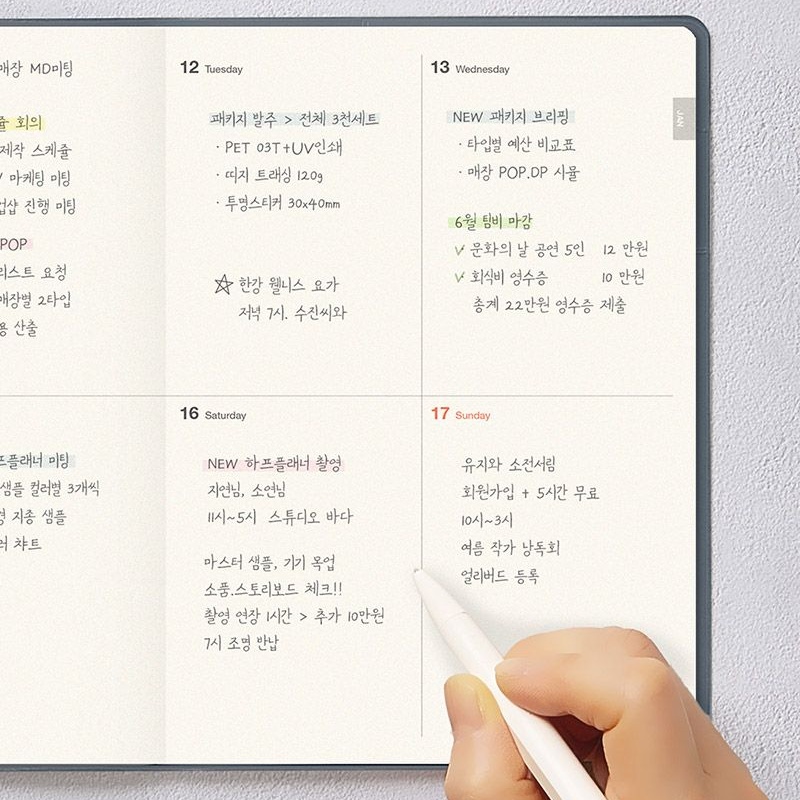 매장 MD미팅
회의
제작 스케쥴
마케팅 미팅
진행 미팅
POP
리스트 요청
매장별 2타입
산출
12 Tuesday
패키지 발주 > 전체 3천세트
· PET 03T+UV인쇄
· 띠지 트래싱 120g
· 투명스티커 30x40mm
☆ 한강 웰니스 요가
저녁 7시. 수진씨와
13 Wednesday
NEW 패키지 브리핑
· 타입별 예산 비교표
· 매장 POP.DP 시뮬
6월 팀비 마감
✓ 문화의 날 공연 5인 12 만원
✓ 회식비 영수증 10 만원
총계 22만원 영수증 제출
JAN
프플래너 미팅
샘플 컬러별 3개씩
지종 샘플
챠트
16 Saturday
NEW 하프플래너 촬영
지연님, 소연님
11시~5시 스튜디오 바다
마스터 샘플, 기기 목업
소품.스토리보드 체크!!
촬영 연장 1시간 > 추가 10만원
7시 조명 반납
17 Sunday
유지와 소전서림
회원가입 + 5시간 무료
10시~3시
여름 작가 낭독회
얼리버드 등록